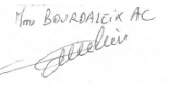 Mme BOURDALEIX AC